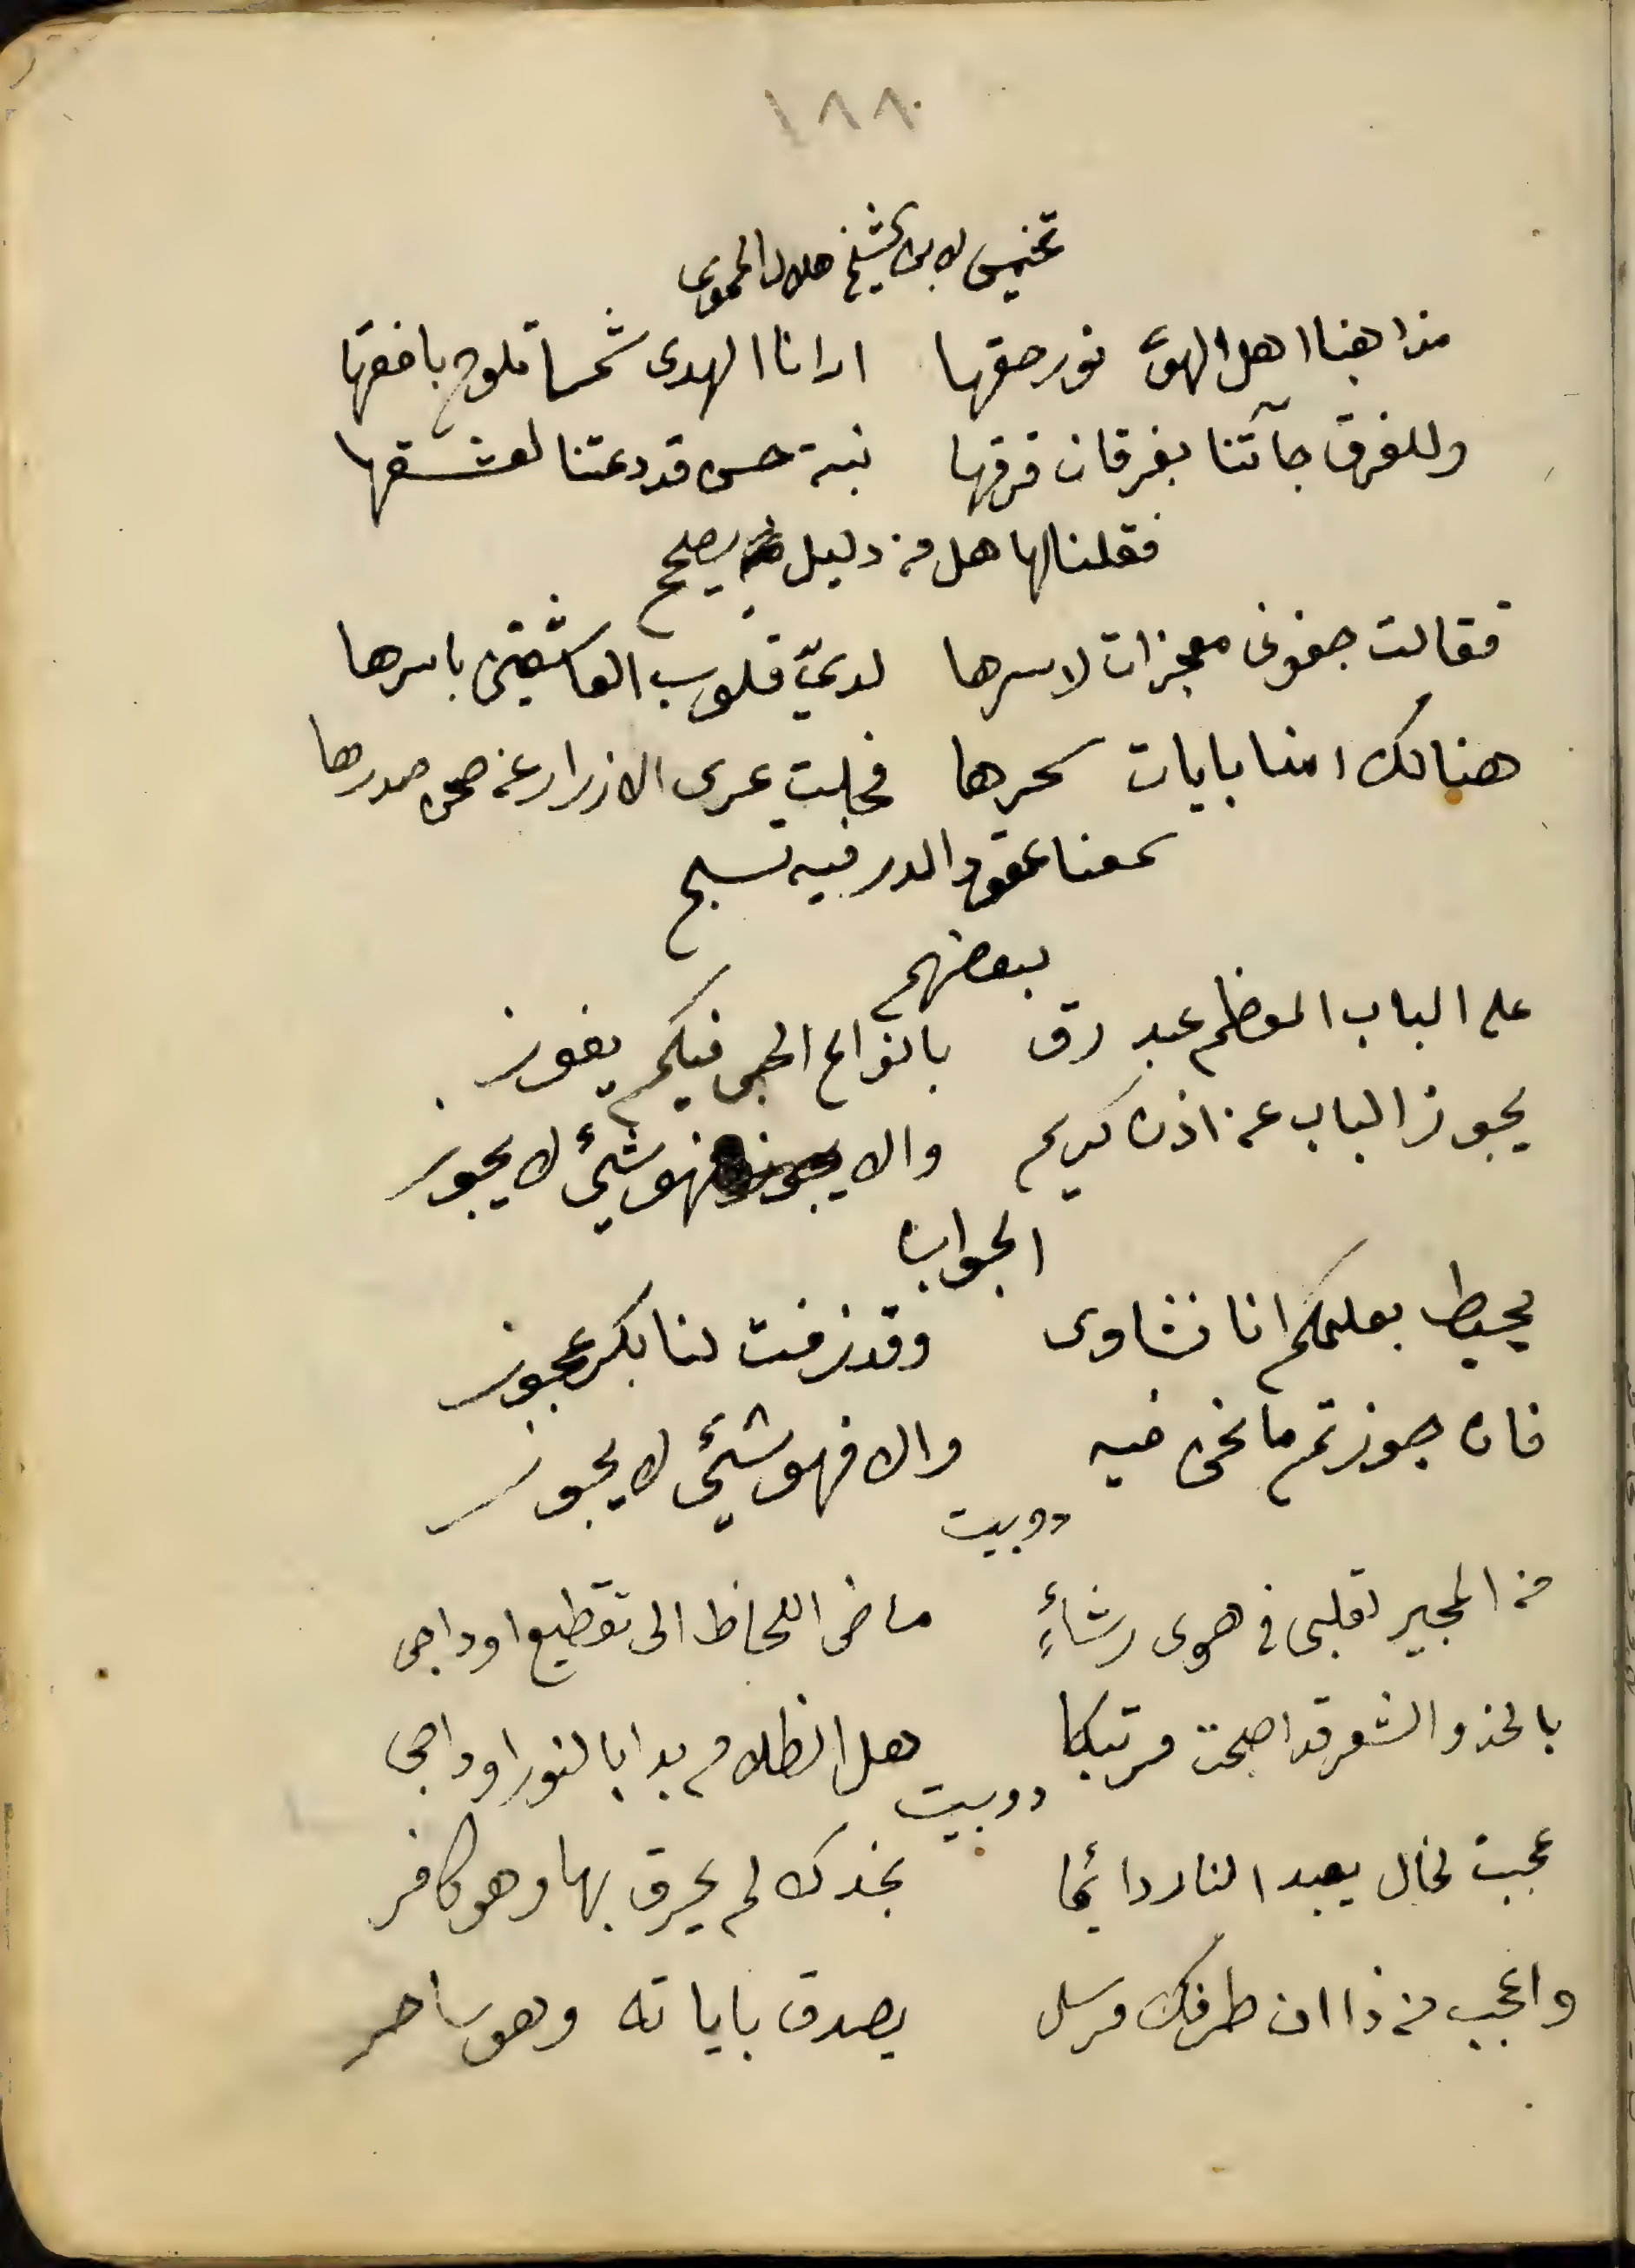 ١٨٨
تخميس لابن الشيخ هلال الحموي
مذاهبنا اهل الهوى نور حقها   ارانا الهدى شمسا تلوح بافقها
وللفرق جآتنا بفرقان فرقها   نبية حسن قد دعتنا لعشقها
فقلنا لها هل من دليل يصلح
فقالت جفوني معجزات لاسرها   لديّ قلوب العاشقين باسرها
هنالك امنا بايات سحرها   فحلت عرى الازرار عن صحن صدرها
سمعنا عقود الدر فيه تسبح
لبعضهم
على الباب المعظم عبد رق   بانواع الحجى فيكم يفوز
يجوز الباب عن اذن كريم   والا فهو شيٌ لا يجوز
الجواب
يحيط بعلمكم انا نشاوى   وقد زفت لنا بكر عجوز
فان جوزتم ما نحن فيه   والا فهو شئ لا يجوز
دوبيت
من المجير لقلبي في هوى رشاءٍ   ماضي اللحاظ الى تقطيع اوداجى
بالخد والشعر قد اصبحت مرتبكا   هل الظلام بدا بالنور اوداجى
دوبيت
عجبت لخال يعبد النار دائما   بخدك لم يحرق بها وهو كافر
واعجب من ذا ان طرفك مرسل   يصدق باياته وهو ساحر